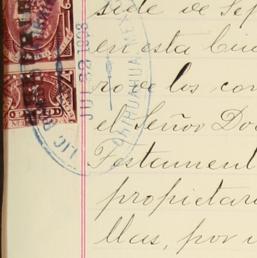 siete de Sep
en esta Ciu
ro de los con
el Señor Do
Testament
propietari
llas, por
JUL 22
LIC. R
CHIHUAHUA, MEX